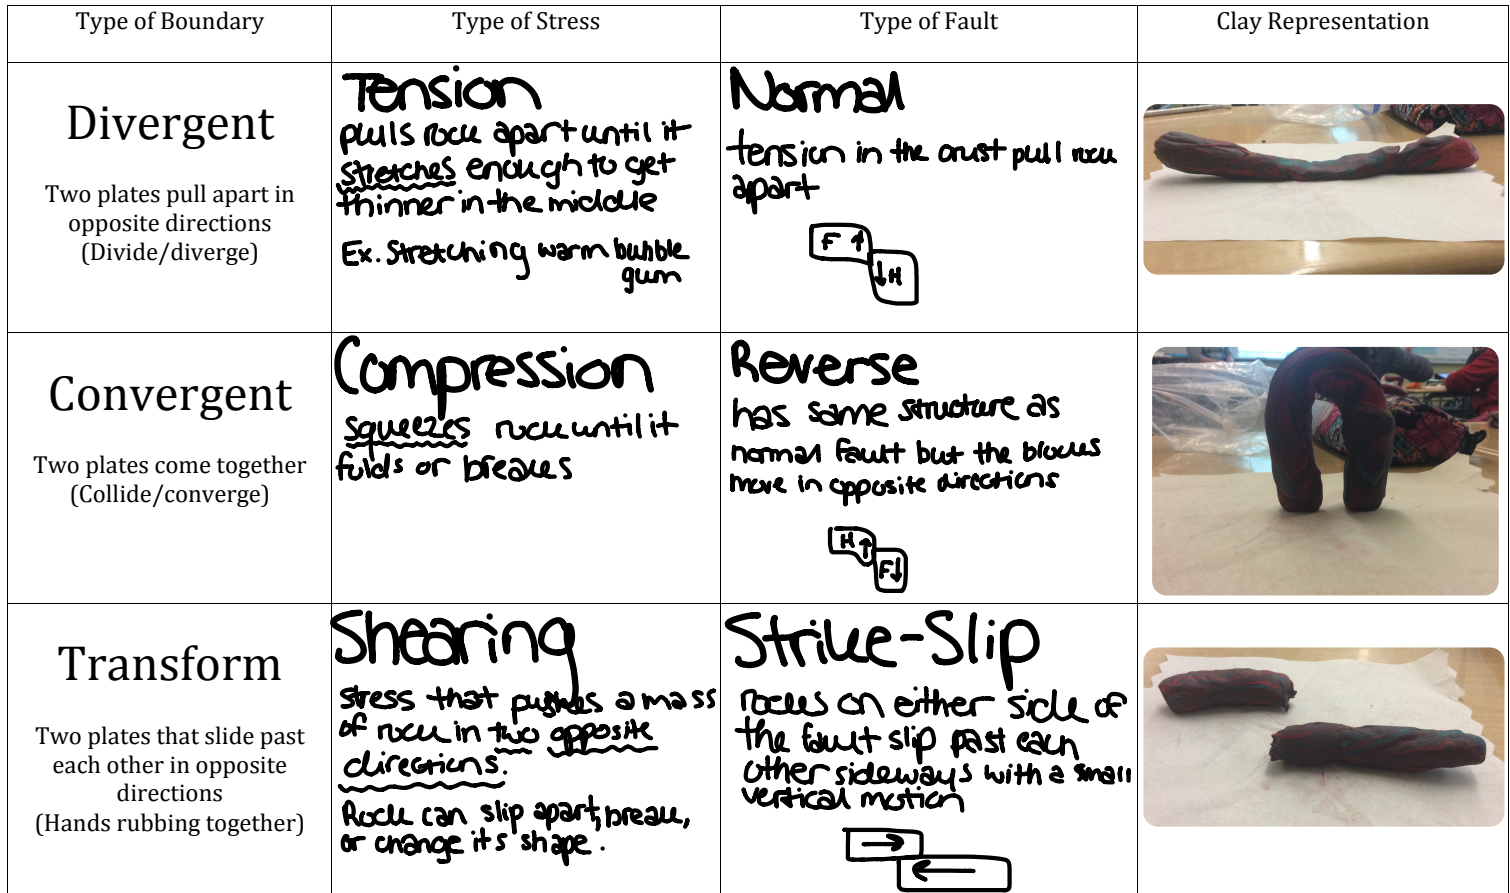 Type of Boundary
Type of Stress
Type of Fault
Clay Representation
Divergent
Two plates pull apart in
opposite directions
(Divide/diverge)
Tension
pulls rock apart until it
stretches enough to get
thinner in the middle
Ex. Stretching warm bubble
gum
Normal
tension in the crust pull rock
apart
F ↑
↓ H
Convergent
Two plates come together
(Collide/converge)
Compression
squeezes rock until it
folds or breaks
Reverse
has same structure as
normal fault but the blocks
move in opposite directions
H ↑
F ↓
Transform
Two plates that slide past
each other in opposite
directions
(Hands rubbing together)
Shearing
stress that pushes a mass
of rock in two opposite
directions.
Rock can slip apart, break,
or change its shape.
Strike-Slip
rocks on either side of
the fault slip past each
other sideways with a small
vertical motion
→
←